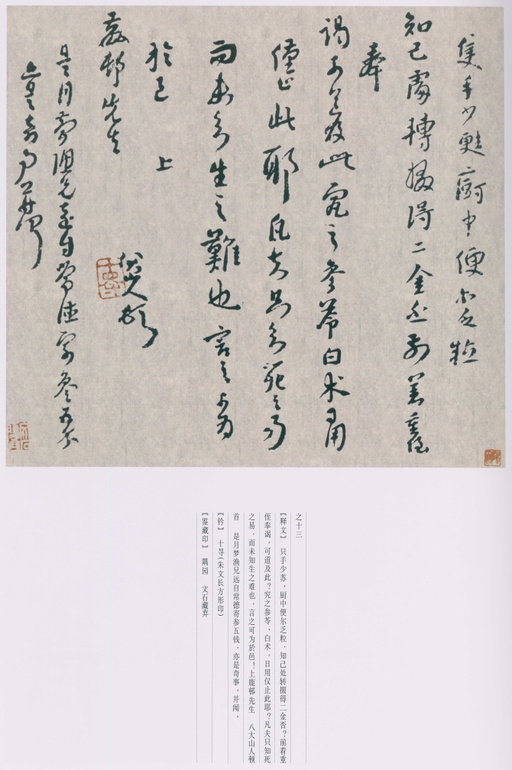 隻手少甦廚中便尔乏粒
知己處轉掇得二金否前著重侄
奉
謁可道及此究之參苓白术日用
僅止此耶凡夫只知死之易
而未知生之難也言之可為
於邑 上
鹿邨先生
八大山人頓首
是月夢漁兄遠自常德寄參五錢
亦是奇事并聞
之十三
【释文】 只手少苏，厨中便尔乏粒，知己处转掇得二金否？前着重
侄奉谒，可道及此？究之参苓、白术，日用仅止此耶？凡夫只知死
之易，而未知生之难也，言之可为於邑！上鹿邨先生 八大山人顿
首 是月梦渔兄远自常德寄参五钱，亦是奇事，并闻。
【钤】 十导（朱文长方形印）
【鉴藏印】 隅园 文石藏弆